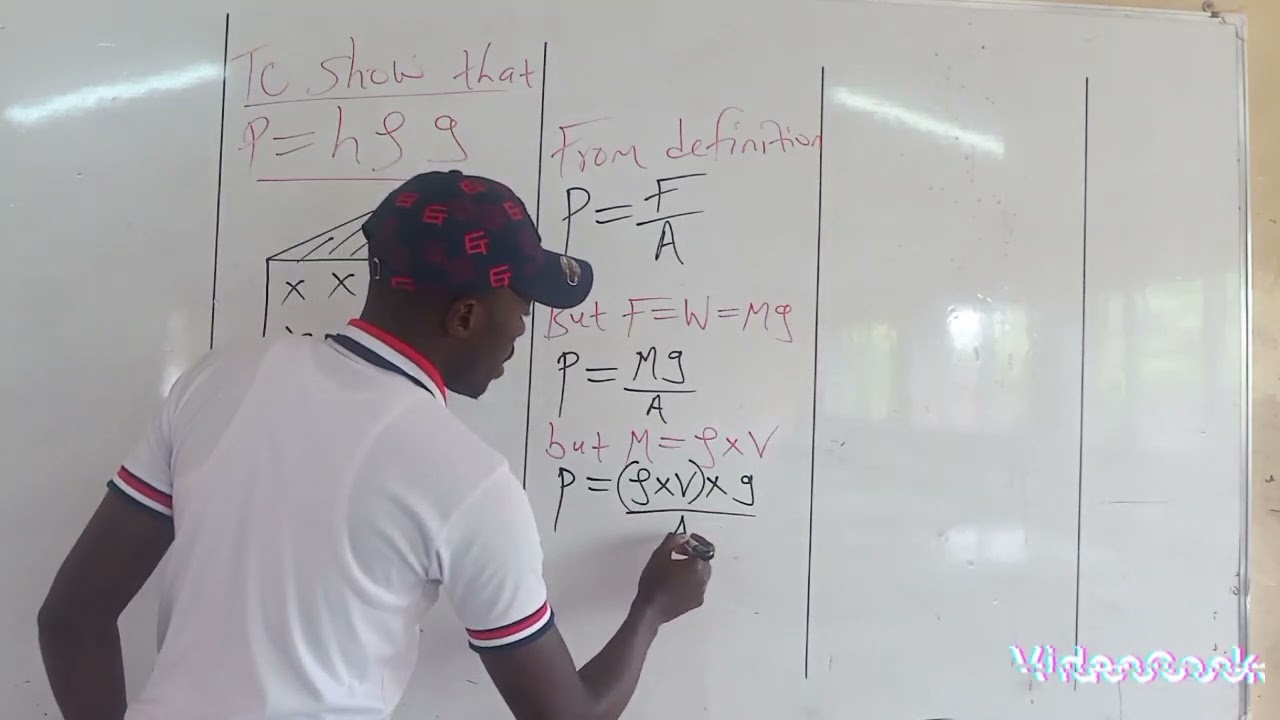 To show that
P = hρg
X X
From definition
P = F/A
But F = W = Mg
P = Mg/A
but M = ρ x V
P = (ρxV) x g/A
VideoCook